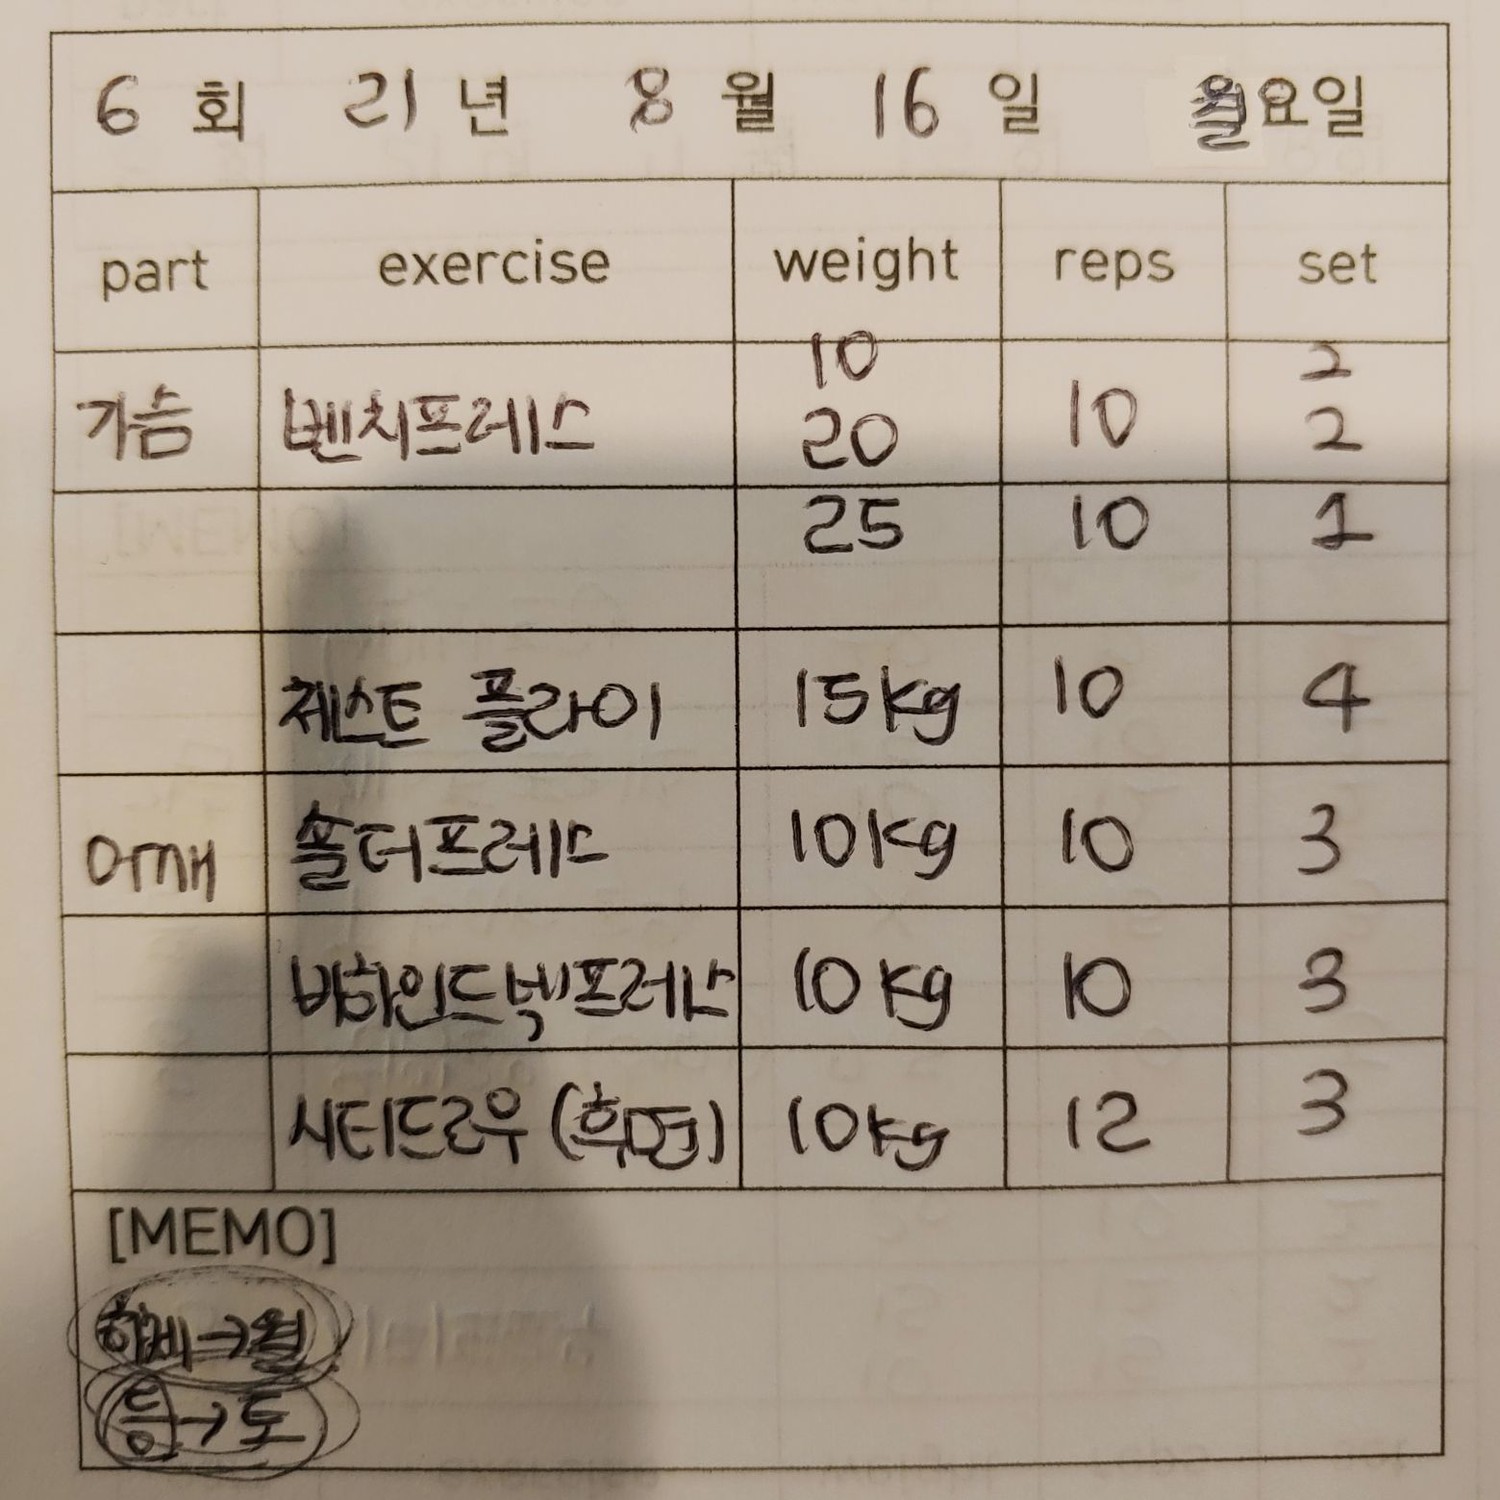 6 회 21 년 8 월 16 일 월요일
part exercise weight reps set
10 2
가슴 벤치프레스 20 10 2
25 10 1
체스트 플라이 15kg 10 4
어깨 숄더프레스 10kg 10 3
비하인드넥프레스 10kg 10 3
시티드로우 (후면) 10kg 12 3
[MEMO]
하체→월
등→토